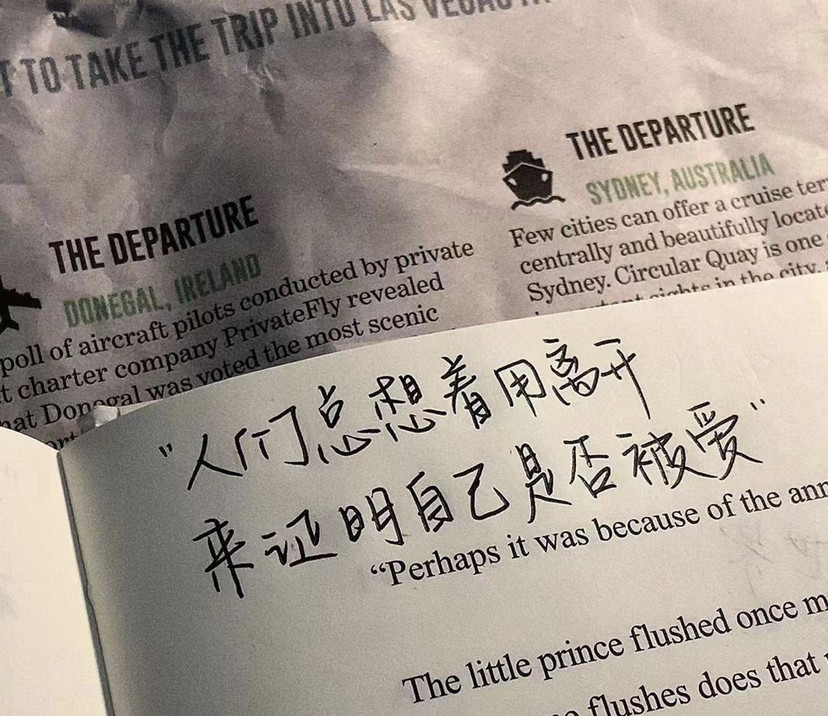 TO TAKE THE TRIP INTO LAS VEGAS
THE DEPARTURE
DONEGAL, IRELAND
poll of aircraft pilots conducted by private
charter company PrivateFly revealed
Donegal was voted the most scenic
THE DEPARTURE
SYDNEY, AUSTRALIA
Few cities can offer a cruise
centrally and beautifully
Sydney. Circular Quay is one
sights in the city
"人们总想着用离开
来证明自己是否被爱"
“Perhaps it was because of the
The little prince flushed once
flushes does that